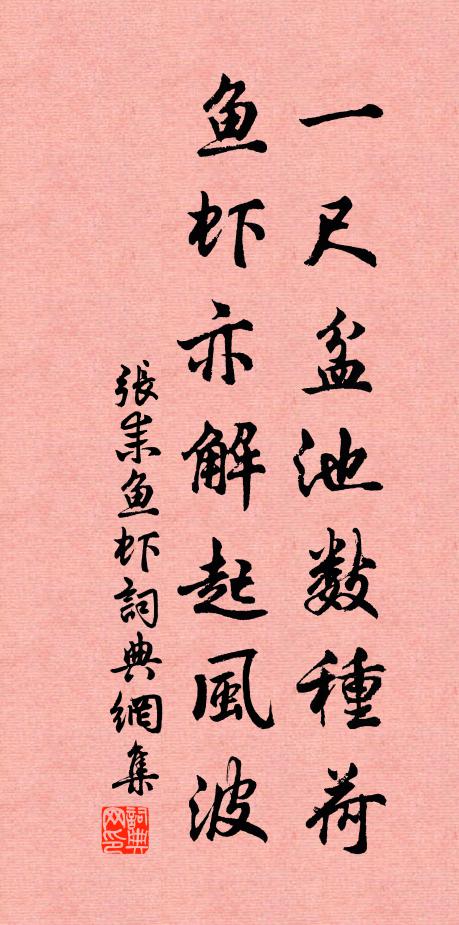 一尺盆池数種荷
鱼虾亦解起風波
張耒鱼虾詞典網集
詞典网印